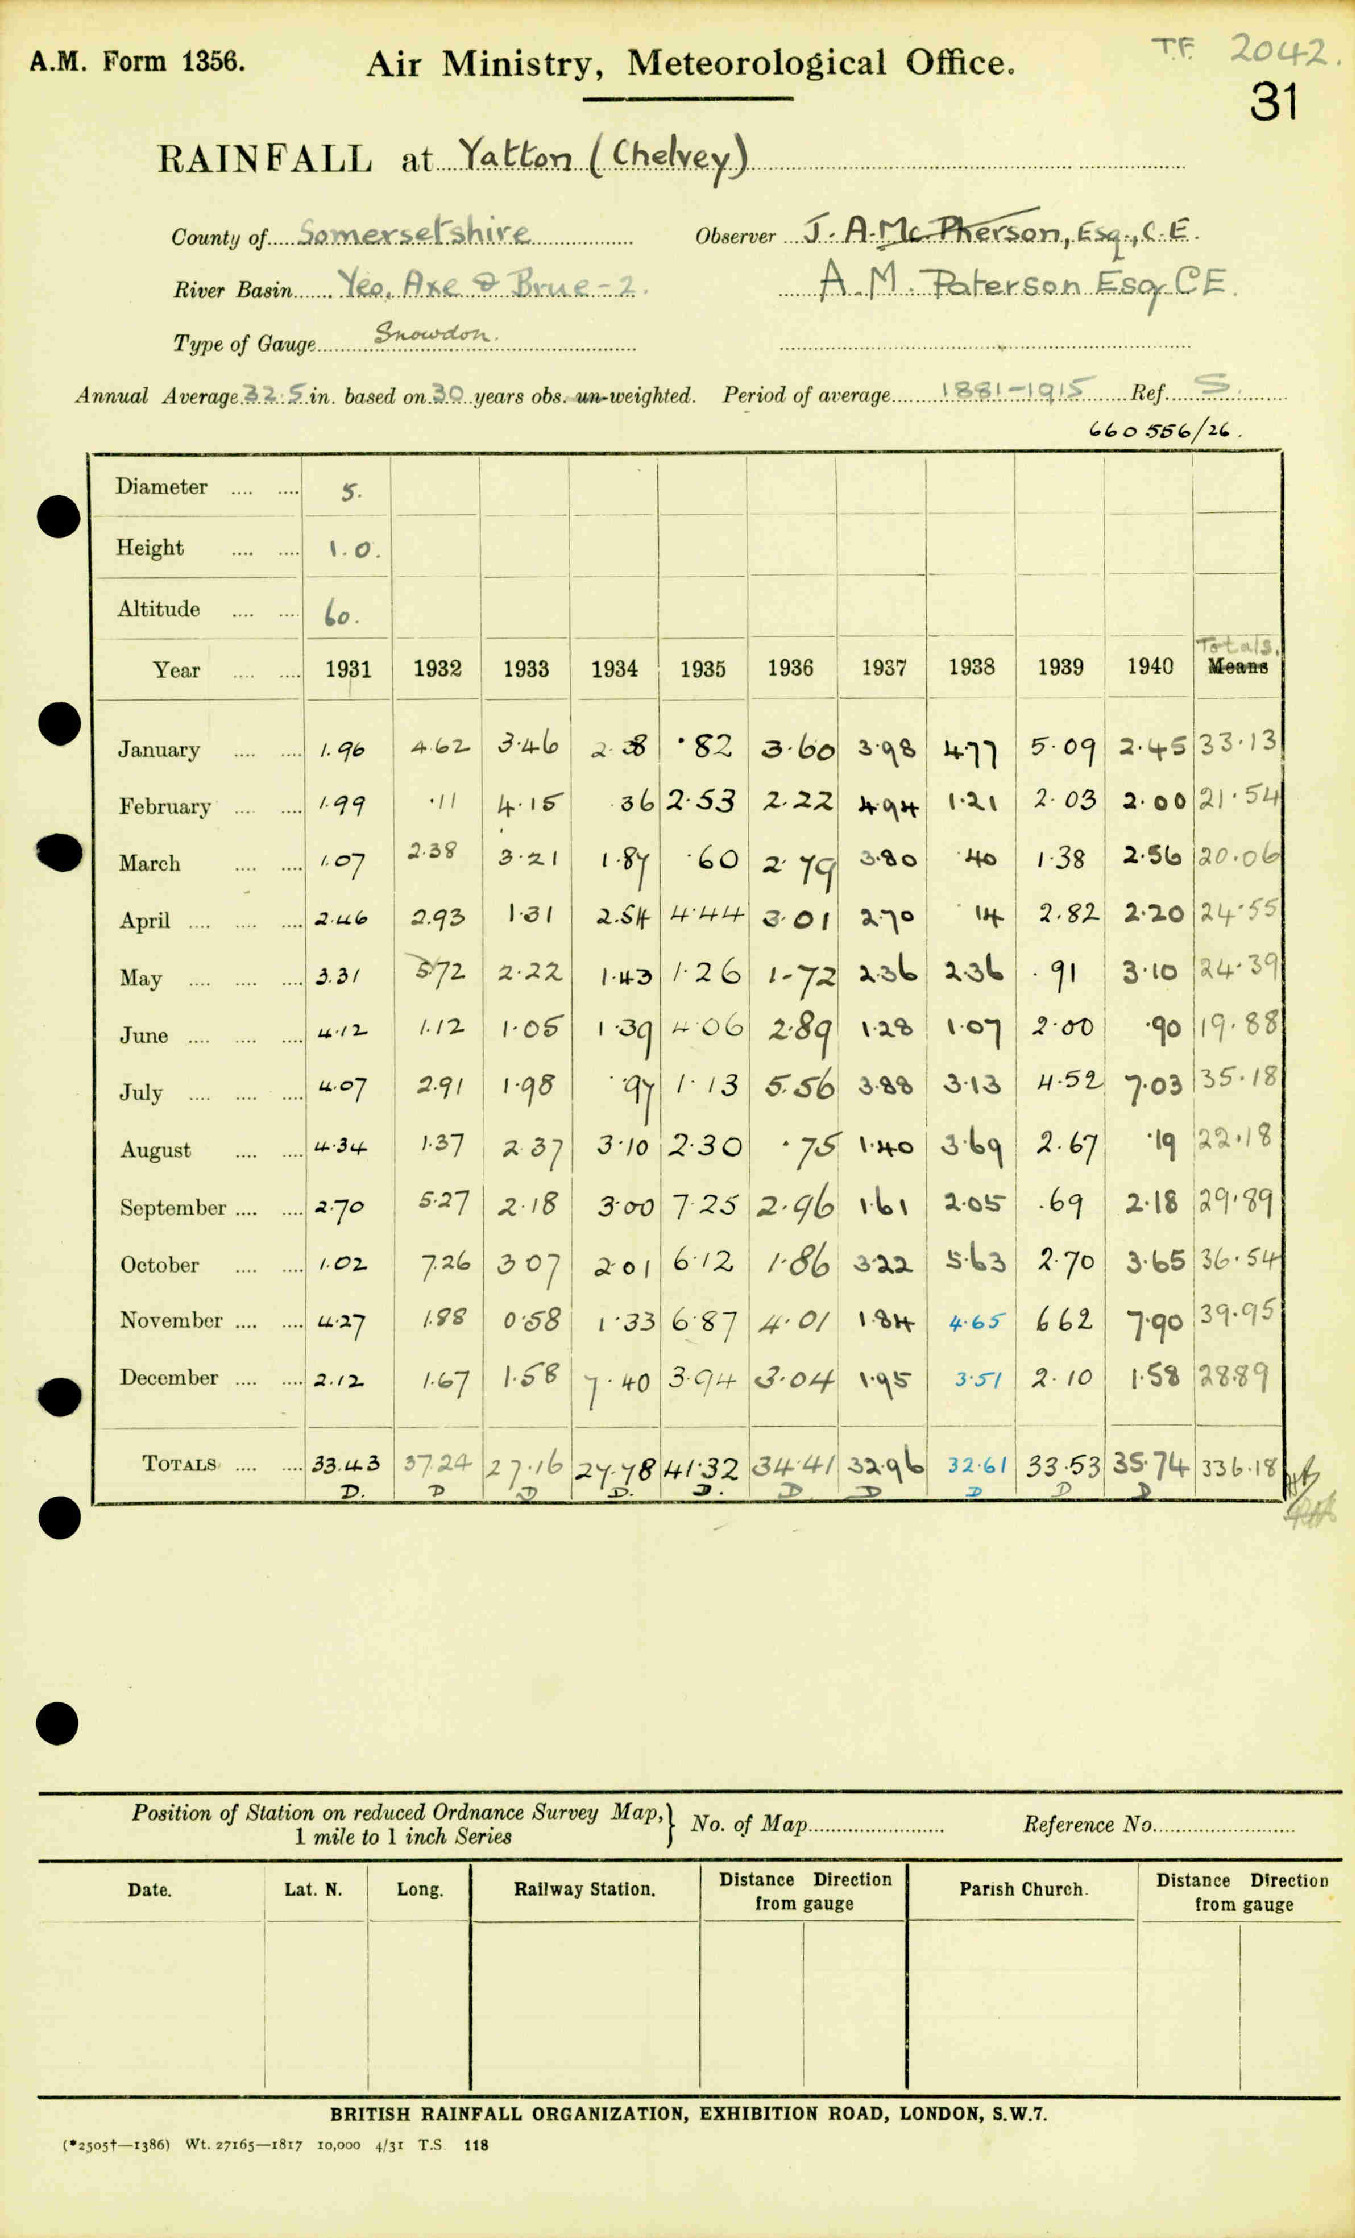 T.F. 2042.
A.M. Form 1356. Air Ministry, Meteorological Office.
31
RAINFALL at Yatton (Chelvey)
County of Somersetshire Observer J. A. Mc. Pherson, Esq., C.E.
River Basin Yeo, Axe & Brue - 2. A. M. Paterson Esq CE.
Type of Gauge Snowdon.
Annual Average 32.5 in. based on 30 years obs. un-weighted. Period of average 1881-1915 Ref. S.
660 556/26.
Diameter .... .... 5.
Height .... .... 1.0.
Altitude .... .... 60.
Totals.
Year .... .... 1931 1932 1933 1934 1935 1936 1937 1938 1939 1940 Means
January .... .... 1.96 4.62 3.46 2.38 .82 3.60 3.98 4.77 5.09 2.45 33.13
February .... .... 1.99 .11 4.15 36 2.53 2.22 4.94 1.21 2.03 2.00 21.54
March .... .... 1.07 2.38 3.21 1.87 .60 2.79 3.80 .40 1.38 2.56 20.06
April .... .... .... 2.46 2.93 1.31 2.54 4.44 3.01 2.70 .14 2.82 2.20 24.55
May .... .... .... 3.31 5.72 2.22 1.43 1.26 1.72 2.36 2.36 .91 3.10 24.39
June .... .... .... 4.12 1.12 1.05 1.39 4.06 2.89 1.28 1.07 2.00 .90 19.88
July .... .... .... 4.07 2.91 1.98 .97 1.13 5.56 3.88 3.13 4.52 7.03 35.18
August .... .... 4.34 1.37 2.37 3.10 2.30 .75 1.40 3.69 2.67 .19 22.18
September .... .... 2.70 5.27 2.18 3.00 7.25 2.96 1.61 2.05 .69 2.18 29.89
October .... .... 1.02 7.26 3.07 2.01 6.12 1.86 3.22 5.63 2.70 3.65 36.54
November .... .... 4.27 1.88 0.58 1.33 6.87 4.01 1.84 4.65 6.62 7.90 39.95
December .... .... 2.12 1.67 1.58 7.40 3.94 3.04 1.95 3.51 2.10 1.58 28.89
TOTALS .... .... 33.43 37.24 27.16 27.78 41.32 34.41 32.96 32.61 33.53 35.74 336.18
D. D D D. D. D D D D D
Position of Station on reduced Ordnance Survey Map, } No. of Map Reference No.
1 mile to 1 inch Series
Date. Lat. N. Long. Railway Station. Distance Direction from gauge Parish Church. Distance Direction from gauge
BRITISH RAINFALL ORGANIZATION, EXHIBITION ROAD, LONDON, S.W.7.
(*2505†—1386) Wt. 27165—1817 10,000 4/31 T.S. 118